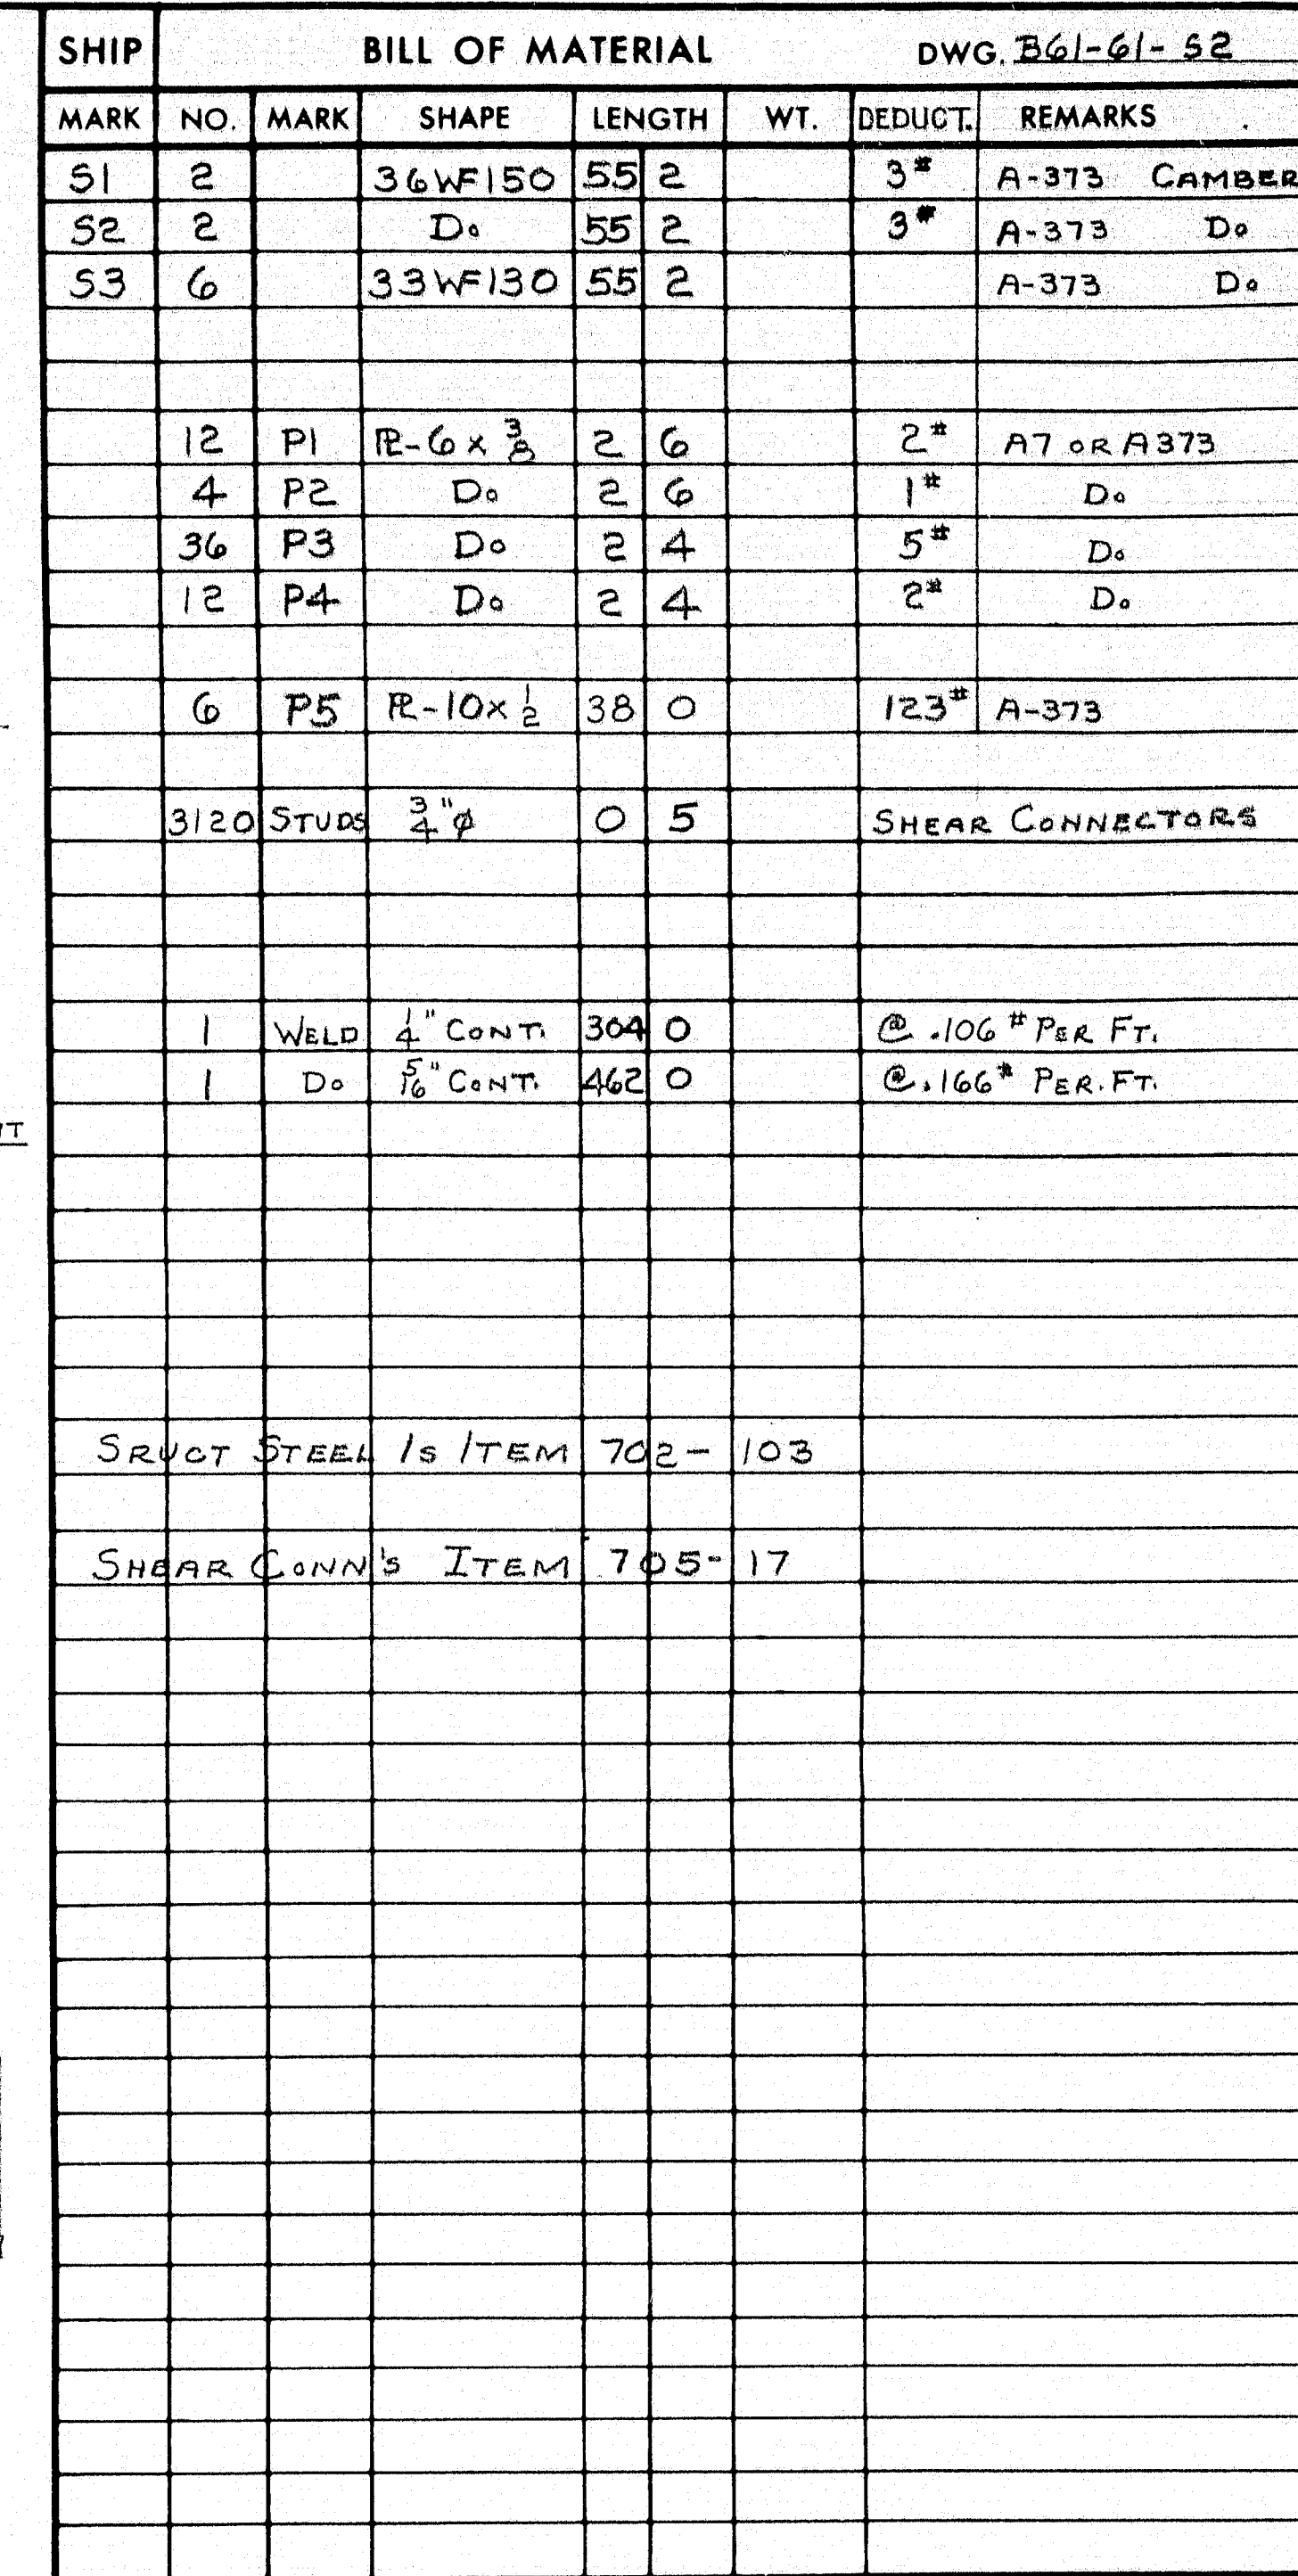 SHIP BILL OF MATERIAL DWG. B61-61-S2
MARK NO. MARK SHAPE LENGTH WT. DEDUCT. REMARKS
S1 2 36WF150 55 2 3# A-373 CAMBER
S2 2 Do 55 2 3# A-373 Do
S3 6 33WF130 55 2 A-373 Do
12 P1 PL-6x3/8 2 6 2# A7 OR A373
4 P2 Do 2 6 1# Do
36 P3 Do 2 4 5# Do
12 P4 Do 2 4 2# Do
6 P5 PL-10x1/2 38 0 123# A-373
3120 STUDS 3/4"ø 0 5 SHEAR CONNECTORS
1 WELD 1/4" CONT. 304 0 @ .106# PER FT.
1 Do 5/16" CONT. 462 0 @ .166# PER. FT.
NT
SRUCT STEEL IS ITEM 702-103
SHEAR CONN'S ITEM 705-17